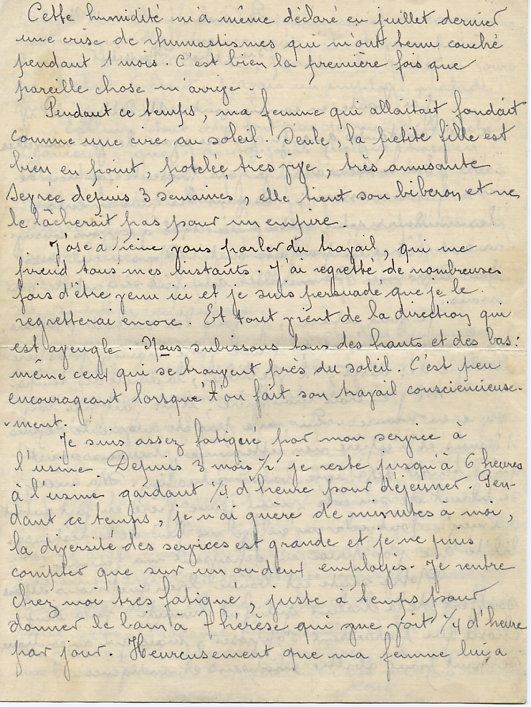 Cette humidité m'a même déclaré en juillet dernier
une crise de rhumatismes qui m'ont tenu couché
pendant 1 mois. C'est bien la première fois que
pareille chose m'arrive.
Pendant ce temps, ma femme qui allaitait fondait
comme une cire au soleil. Seule, la petite fille est
bien en point, potelée très vive, très amusante
Sevrée depuis 3 semaines, elle tient son biberon et ne
le lâcherait pas pour un empire.
J'ose à peine vous parler du travail, qui me
prend tous mes instants. J'ai regretté de nombreuses
fois d'être venu ici et je suis persuadé que je le
regretterai encore. Et tout vient de la direction qui
est aveugle. Nous subissons tous des hauts et des bas:
même ceux qui se trouvent près du soleil. C'est peu
encourageant lorsqu't on fait son travail consciencieuse-
-ment.
Je suis assez fatigué par mon service à
l'usine. Depuis 3 mois 1/2 je reste jusqu'à 6 heures
à l'usine gardant 1/4 d'heure pour déjeuner. Pen-
dant ce temps, je n'ai guère de minutes à moi,
la diversité des services est grande et je ne puis
compter que sur un ou deux employés. Je rentre
chez moi très fatigué, juste à temps pour
donner le bain à Thérèse qui me voit 1/4 d'heure
par jour. Heureusement que ma femme lui a